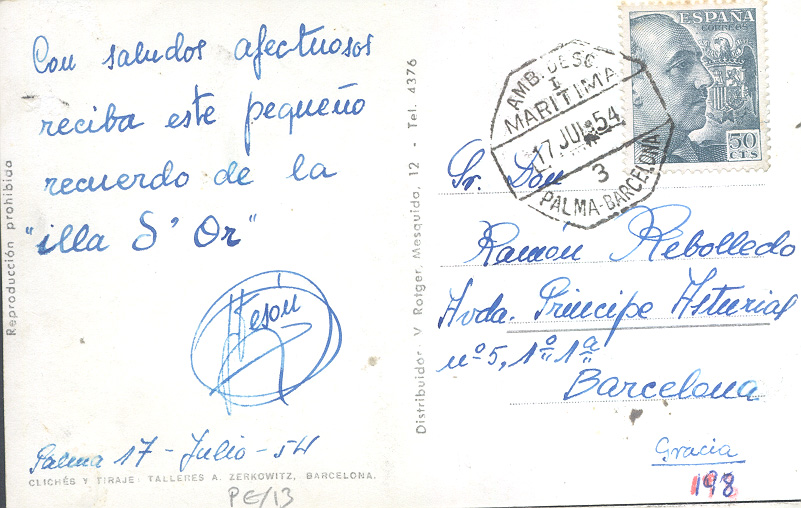 Con saludos afectuosos
reciba este pequeño
recuerdo de la
"illa d' Or"
Palma 17 - Julio - 54
CLICHÉS Y TIRAJE: TALLERES A. ZERKOWITZ, BARCELONA.
PE/13
Reproducción prohibida
Distribuidor V. Rotger. Mesquida, 12 - Tel. 4376
ESPAÑA
CORREOS
50
CTS
AMB. DESC.
I
MARITIMA
17 JUL 54
3
PALMA-BARCELONA
Sr. Don
Ramón Rebolledo
Avda. Principe Asturias
nº 5, 1º 1ª
Barcelona
Gracia
198